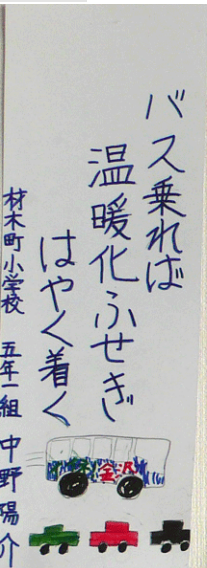 バス乗れば
温暖化ふせぎ
はやく着く
材木町小学校 五年一組 中野陽介
金沢